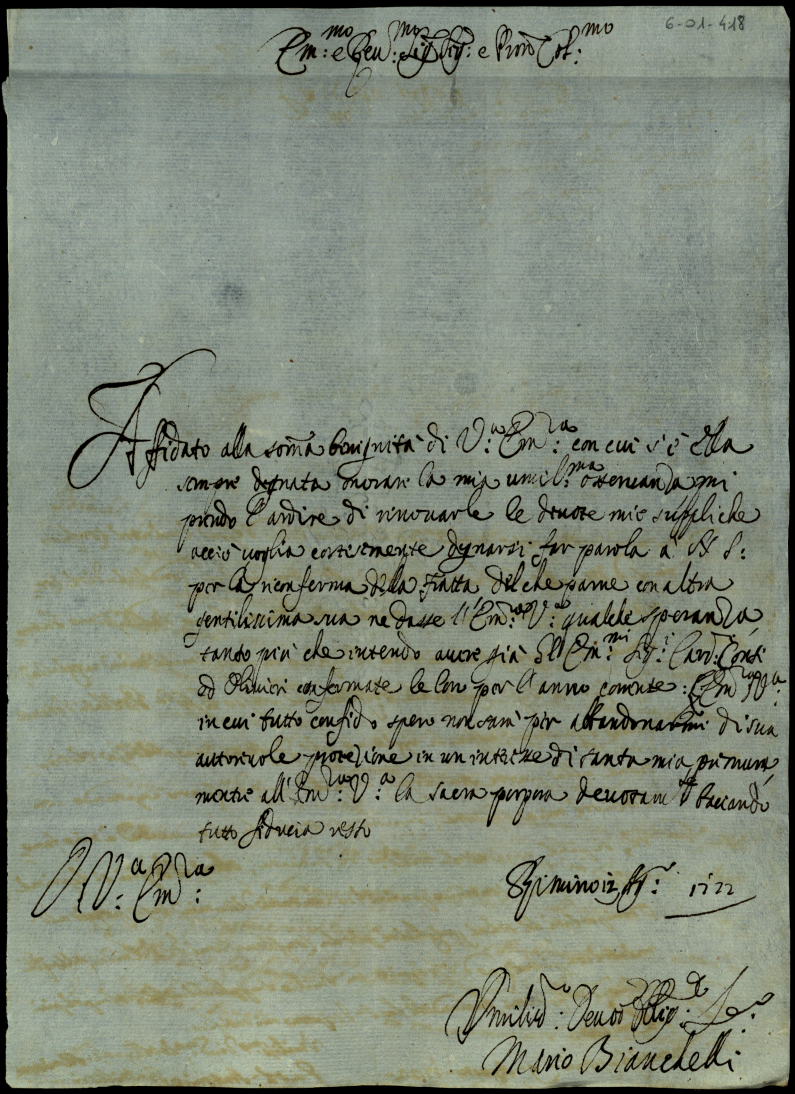 6-01-418
Em:mo e Rev:mo Sig:r Sig:r e Pron Col:mo
Affidato alla som̃a benignità di V:a Em:za con cui s'è Ella
sempre degnata onorare la mia umil:ma osservanza mi
prendo l'ardire di rinovarle le devote mie suppliche
acciò voglia cortesemente degnarsi far parola a N S:
per la riconferma della Tratta del che parme con altra
gentilissima sua ne dasse l'Em:za V:a qualche speranza,
tanto più che intendo avere già gli Em:mi Sig:i Card:i Conti
ed Olivieri confermate le loro per l'anno corrente: l'Em:za V:a
in cui tutto confido spero non sarà per abbandonarmi di sua
autorevole protezione in un interesse di tanta mia premura,
mentre all'Em:za V:a la sacra porpora devotam:te baciando
tutto fiducia resto
D V:a Em:za
Rimino 12 1722
Umiliss:o Devot Obblig:
Mario Bianchelli